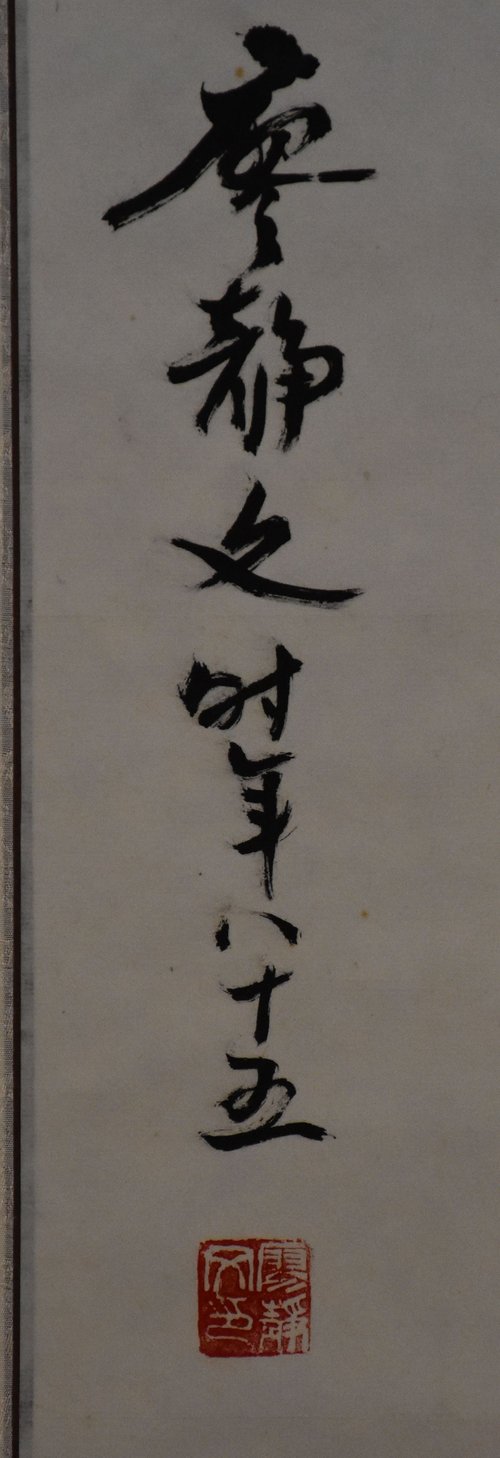 廖静文时年八十五
廖静文印